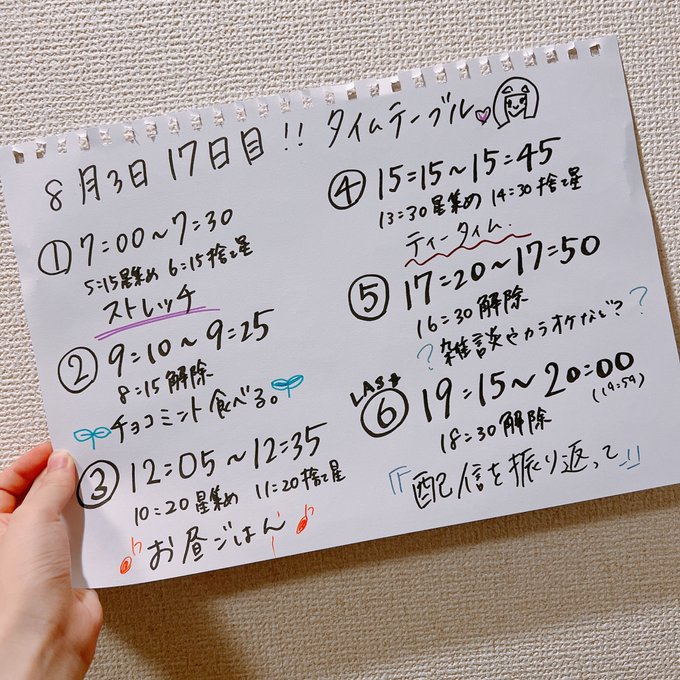 8月3日 17日目!! タイムテーブル
① 7:00〜7:30
5:15星集め 6:15捨て星
ストレッチ
② 9:10〜9:25
8:15解除
チョコミント食べる。
③ 12:05〜12:35
10:20星集め 11:20捨て星
お昼ごはん
④ 15:15〜15:45
13:30星集め 14:30捨て星
ティータイム.
⑤ 17:20〜17:50
16:30解除
?雑談やカラオケなど??
LAST
⑥ 19:15〜20:00
(19:59)
18:30解除
『配信を振り返って』!!